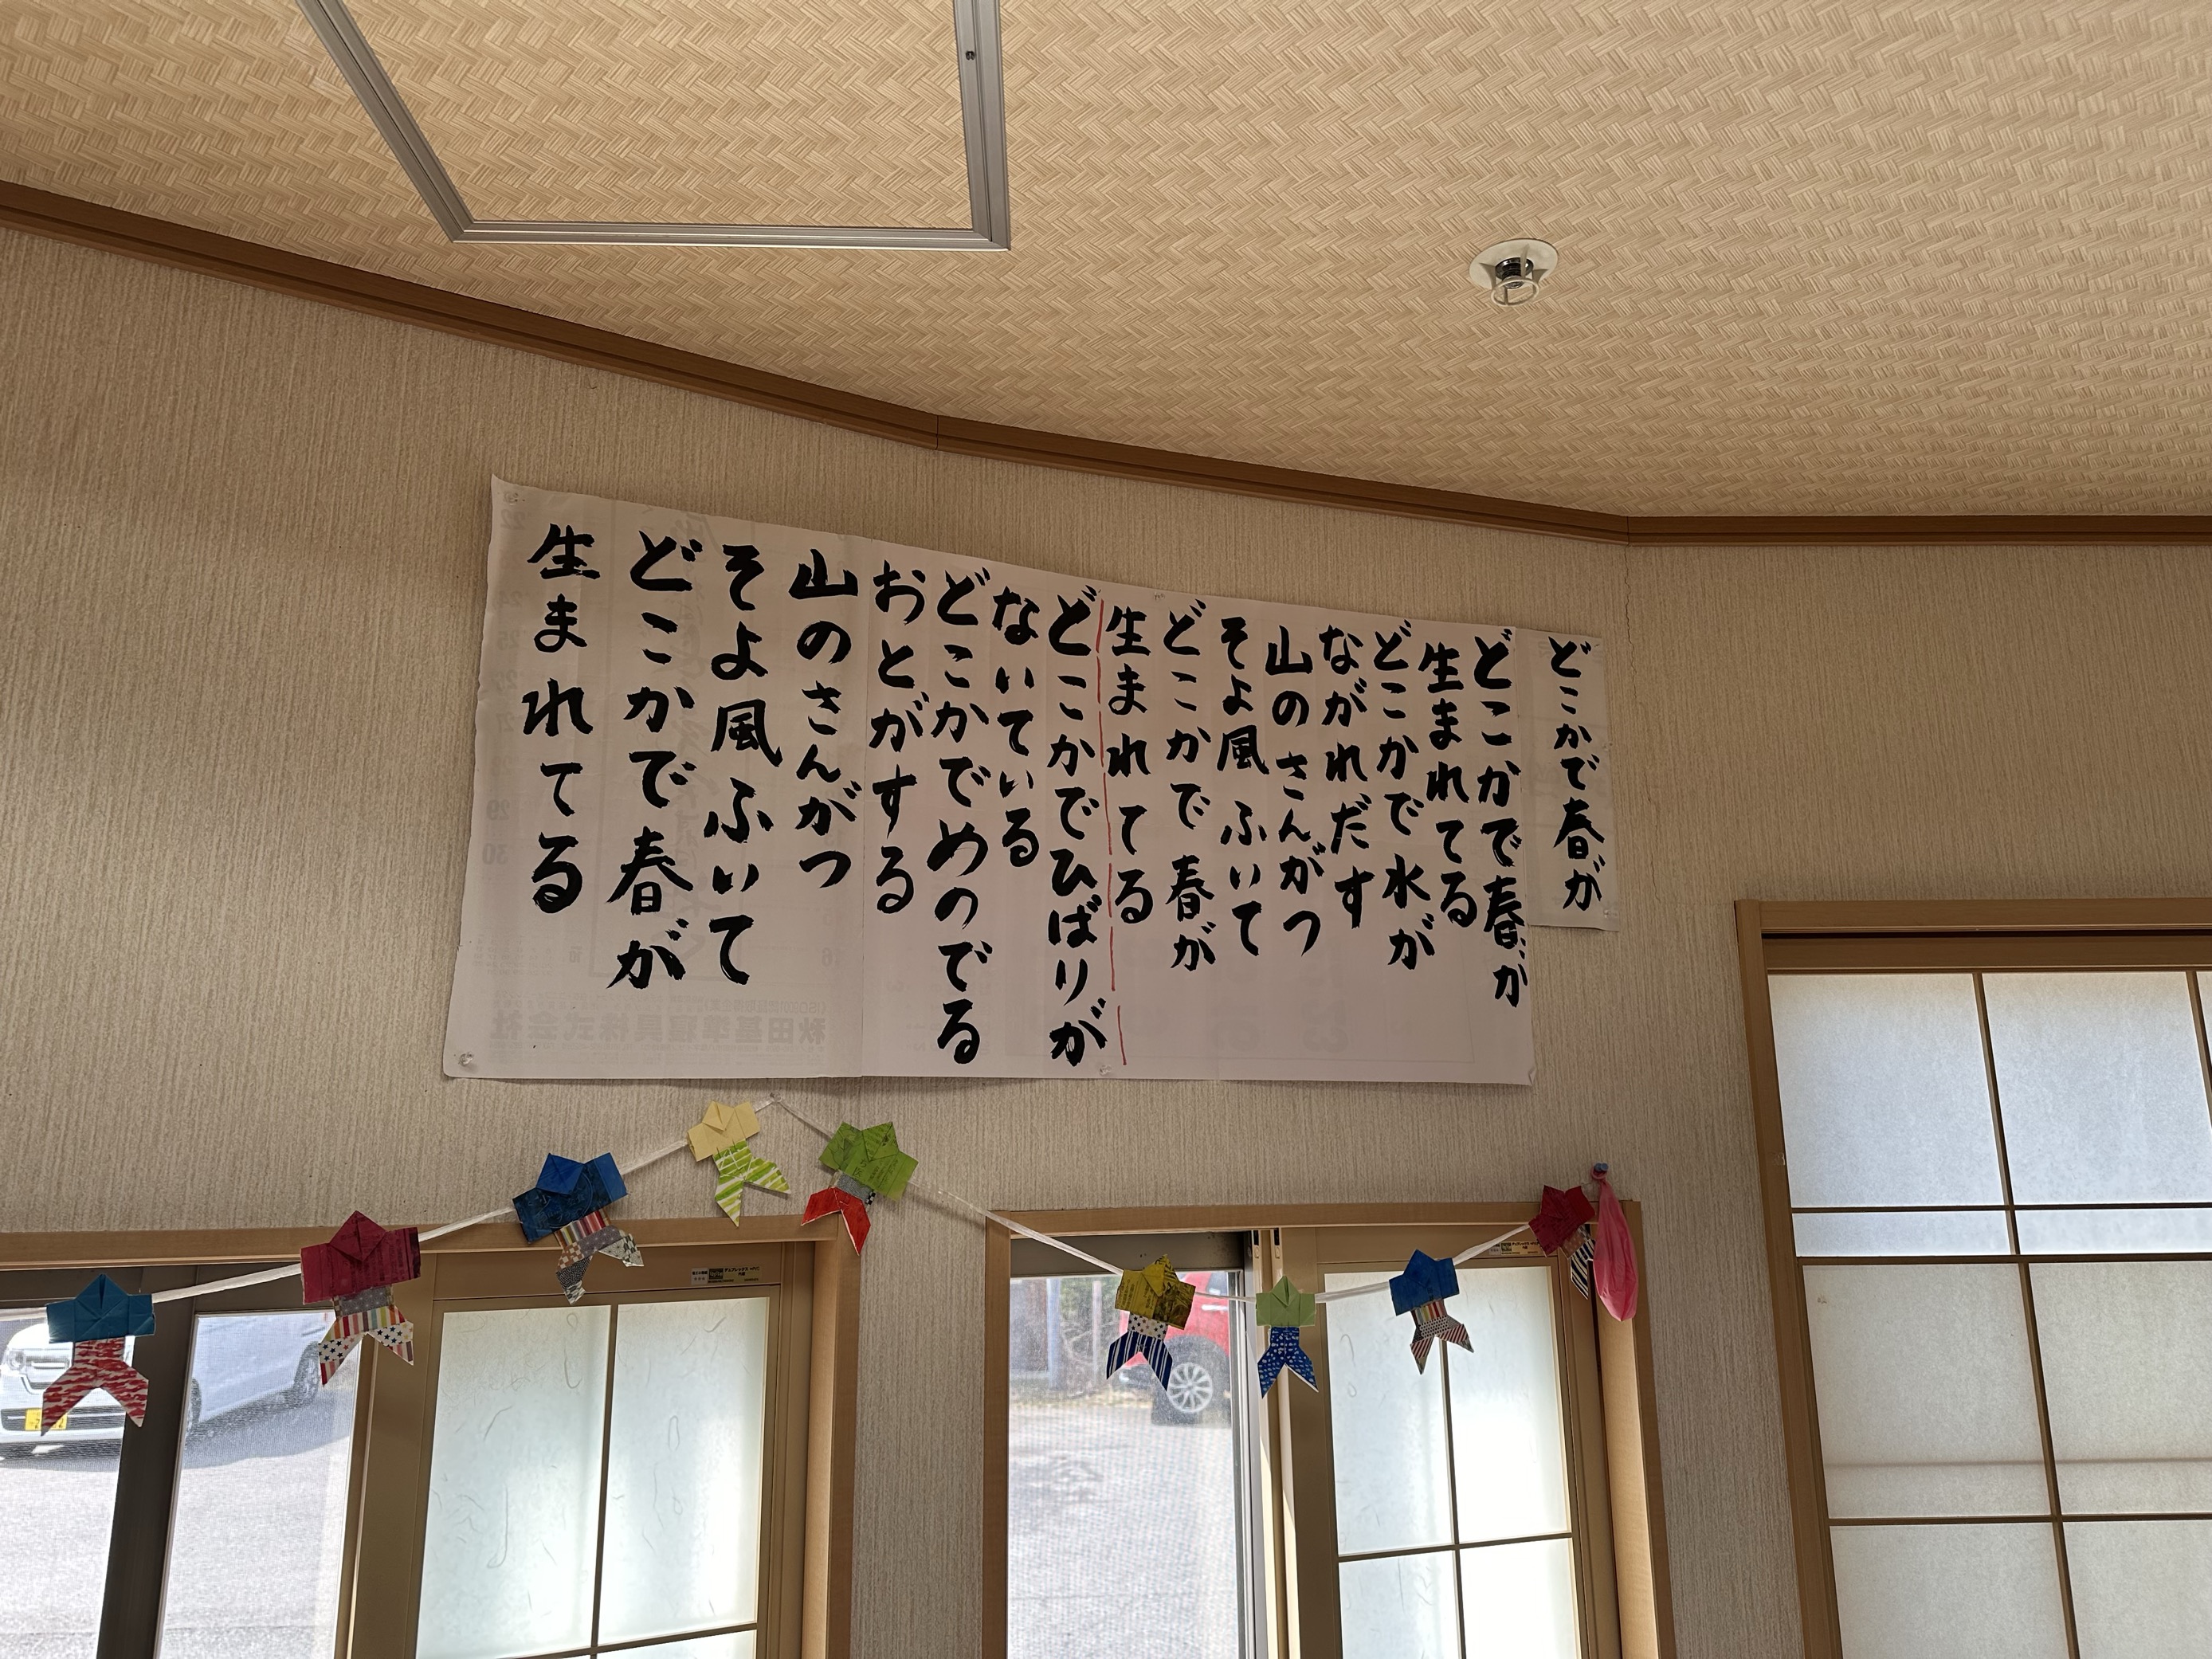 どこかで春が
どこかで春が
生まれてる
どこかで水が
ながれだす
山のさんがつ
そよ風ふいて
どこかで春が
生まれてる
どこかでひばりが
ないている
どこかでめのでる
おとがする
山のさんがつ
そよ風ふいて
どこかで春が
生まれてる